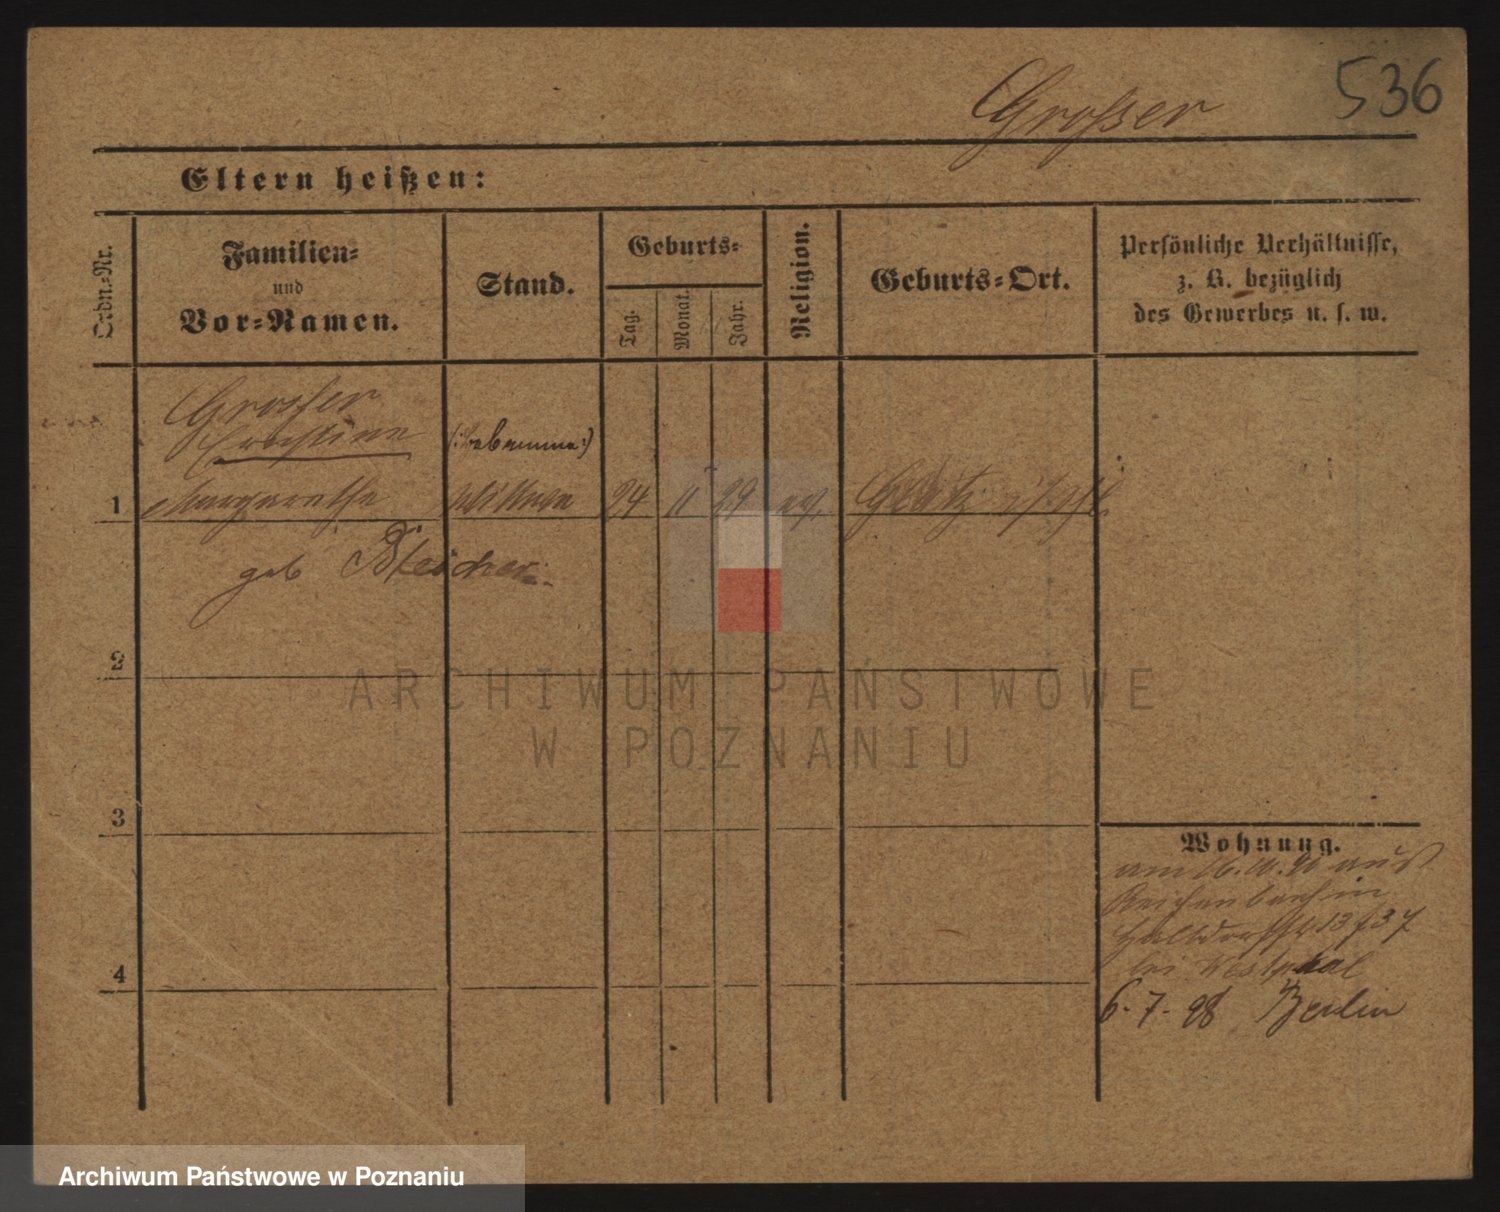 536
Großer
Eltern heißen:
Ordn.-Nr.
Familien-
und
Vor-Namen.
Stand.
Geburts-
Tag.
Monat.
Jahr.
Religion.
Geburts-Ort.
Persönliche Verhältnisse,
z. B. bezüglich
des Gewerbes u. s. w.
Grosser
Ernestine
(:Hebamme:)
1 Margarethe Wittwe 24 11 29 ev. Glatz
geb Bleicher
2
ARCHIWUM PAŃSTWOWE
W POZNANIU
3
Wohnung.
am 16.10.90 aus
Reichenbach in
Halbdorfstr 13
bei Westphal
4
6.7.98 Berlin
Archiwum Państwowe w Poznaniu